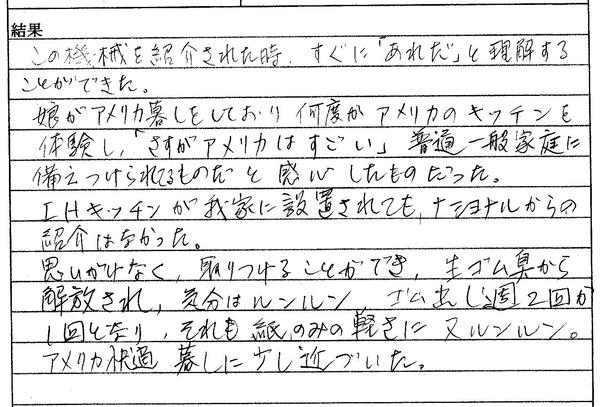 結果
この機械を紹介された時、すぐに「あれだ」と理解する
ことができた。
娘がアメリカ暮しをしており 何度かアメリカのキッチンを
体験し、「さすがアメリカはすごい」普通一般家庭に
備えつけられてるものだと感心したものだった。
IHキッチンが我家に設置されても、ナショナルからの
紹介はなかった。
思いがけなく、取りつけることができ、生ゴム臭から
解放され、気分はルンルン、ゴム出し週2回が
1回となり、それも紙のみの軽さに又ルンルン。
アメリカ快適 暮しに少し近づいた。